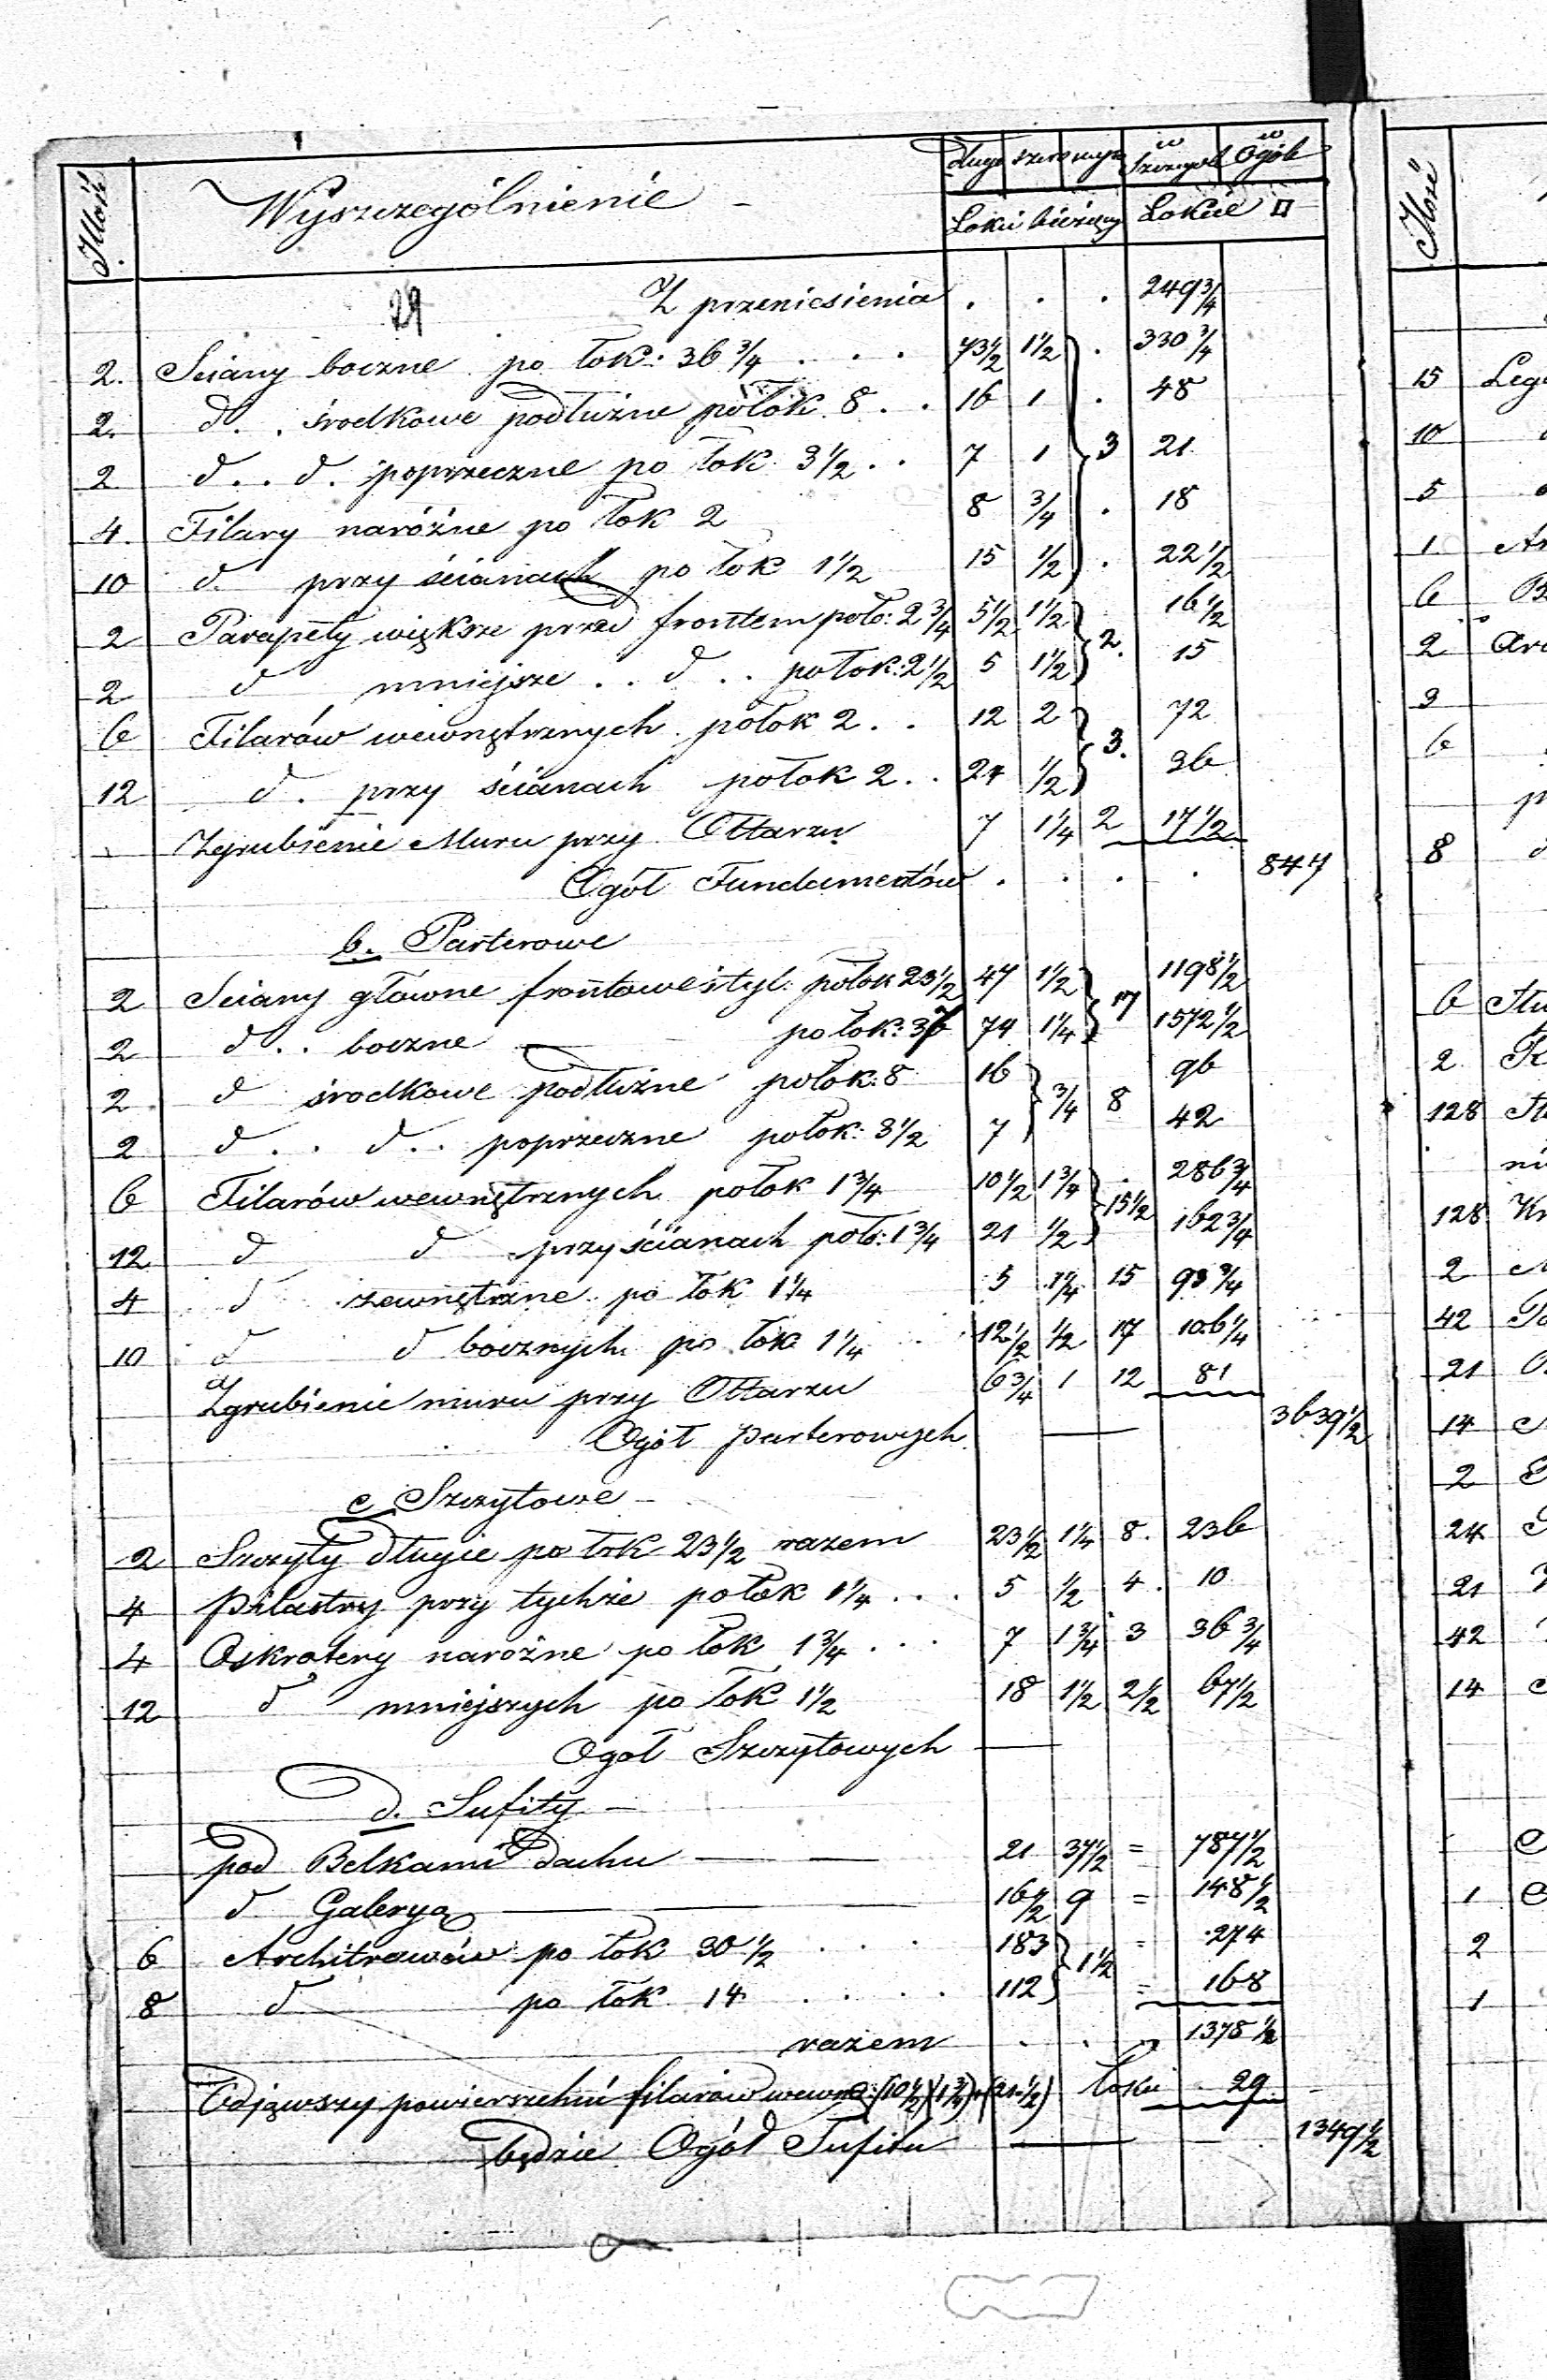 Illość Wyszczególnienie - długo szero wyso w Szczegół w Ogóle
Łokci bieżący Łokcie □
29 Z przeniesienia . . . 249 3/4
2. Sciany boczne po łok: 36 3/4 . . . 73 1/2 1 1/2 . 330 3/4
2. d . . środkowe podłużne po łok 8 . . 16 1 . 48
2 d . . d . poprzeczne po łok 3 1/2 . . 7 1 3 21
4. Filary naróżne po łok 2 8 3/4 . 18
10 d. przy ścianach po łok 1 1/2 15 1/2 . 22 1/2
2 Parapety większe przed frontem po ło: 2 3/4 5 1/2 1 1/2 16 1/2
2 d mniejsze . . d . . po łok: 2 1/2 5 1 1/2 2. 15
6 Filarów wewnętrznych po łok 2 . . 12 2 72
12 d. przy ścianach po łok 2 . . 24 1/2 3. 36
Zgrubienie Muru przy Ołtarzu 7 1 1/4 2 17 1/2
Ogół Fundamentów . . . . 847
b. Parterowe
2 Sciany główne frontowe i tyl: po łok 23 1/2 47 1 1/2 1198 1/2
2 d . . boczne — po łok: 37 74 1 1/4 17 1572 1/2
2 d środkowe podłużne po łok: 8 16 96
2 d . . d . . poprzeczne po łok: 3 1/2 7 3/4 8 42
6 Filarów wewnętrznych po łok 1 3/4 10 1/2 1 3/4 . 286 3/4
12 d d przy ścianach po ło: 1 3/4 21 1/2 15 1/2 162 3/4
4 d zewnętrzne po łok 1 1/4 5 1 1/4 15 93 3/4
10 d d bocznych po łok 1 1/4 12 1/2 1/2 17 106 1/4
Zgrubienie muru przy Ołtarzu 6 3/4 1 12 81
Ogół parterowych — 3639 1/2
c Szczytowe -
2 Szczyty długie po łok 23 1/2 razem 23 1/2 1 1/4 8. 236
4 Pilastry przy tychże po łok 1 1/4 . . . 5 1/2 4. 10
4 Oskratery narożne po łok 1 3/4 . . . 7 1 3/4 3 36 3/4
12 d mniejszych po łok 1 1/2 18 1 1/2 2 1/2 67 1/2
Ogół Szczytowych —
d. Sufity -
pod Belkami dachu — — 21 37 1/2 = 787 1/2
d Galeryą — — — 16 1/2 9 = 148 1/2
6 Architrawów po łok 30 1/2 . . . 183 = 274
8 d po łok 14 . . . . 112 1 1/2 = 168
razem . . " 1378 1/2
Odjąwszy powierzchni filarów wewnę: (10 1/2)(1 3/4)+(21 1/2) łokci 29
będzie Ogół Sufitu — 1349 1/2
Ilosć
15 Leg
10
5
1.
6 B
2
9
6
p
8
6
2
128
ni
128
2
42
21
14
2
24
21
42
14
1
2
1